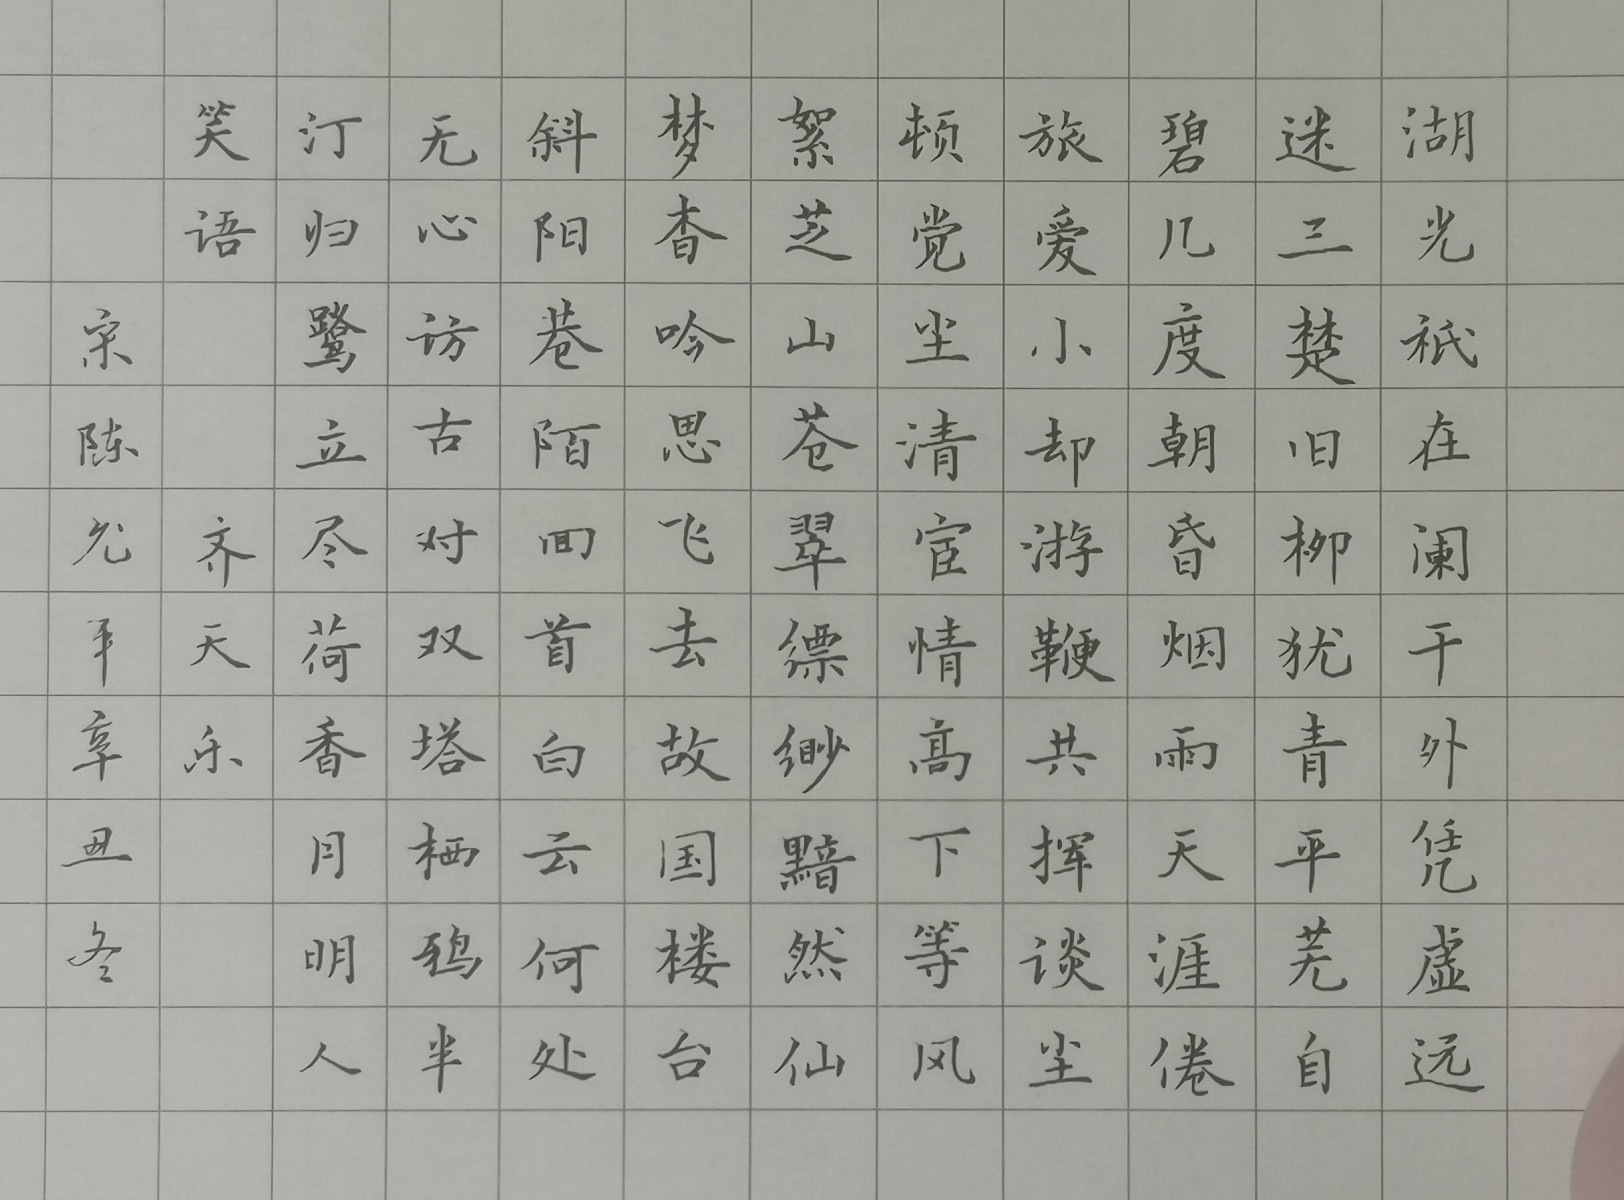 湖光祇在阑干外凭虚远
迷三楚旧柳犹青平芜自
碧几度朝昏烟雨天涯倦
旅爱小却游鞭共挥谈尘
顿觉尘清宦情高下等风
絮芝山苍翠缥缈黯然仙
梦杳吟思飞去故国楼台
斜阳巷陌回首白云何处
无心访古对双塔栖鸦半
汀归鹭立尽荷香月明人
笑语
齐天乐
宋陈允平辛丑冬